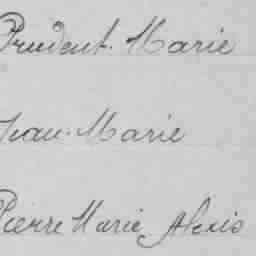 Prudent Marie
Jean Marie
Pierre Marie Alexis